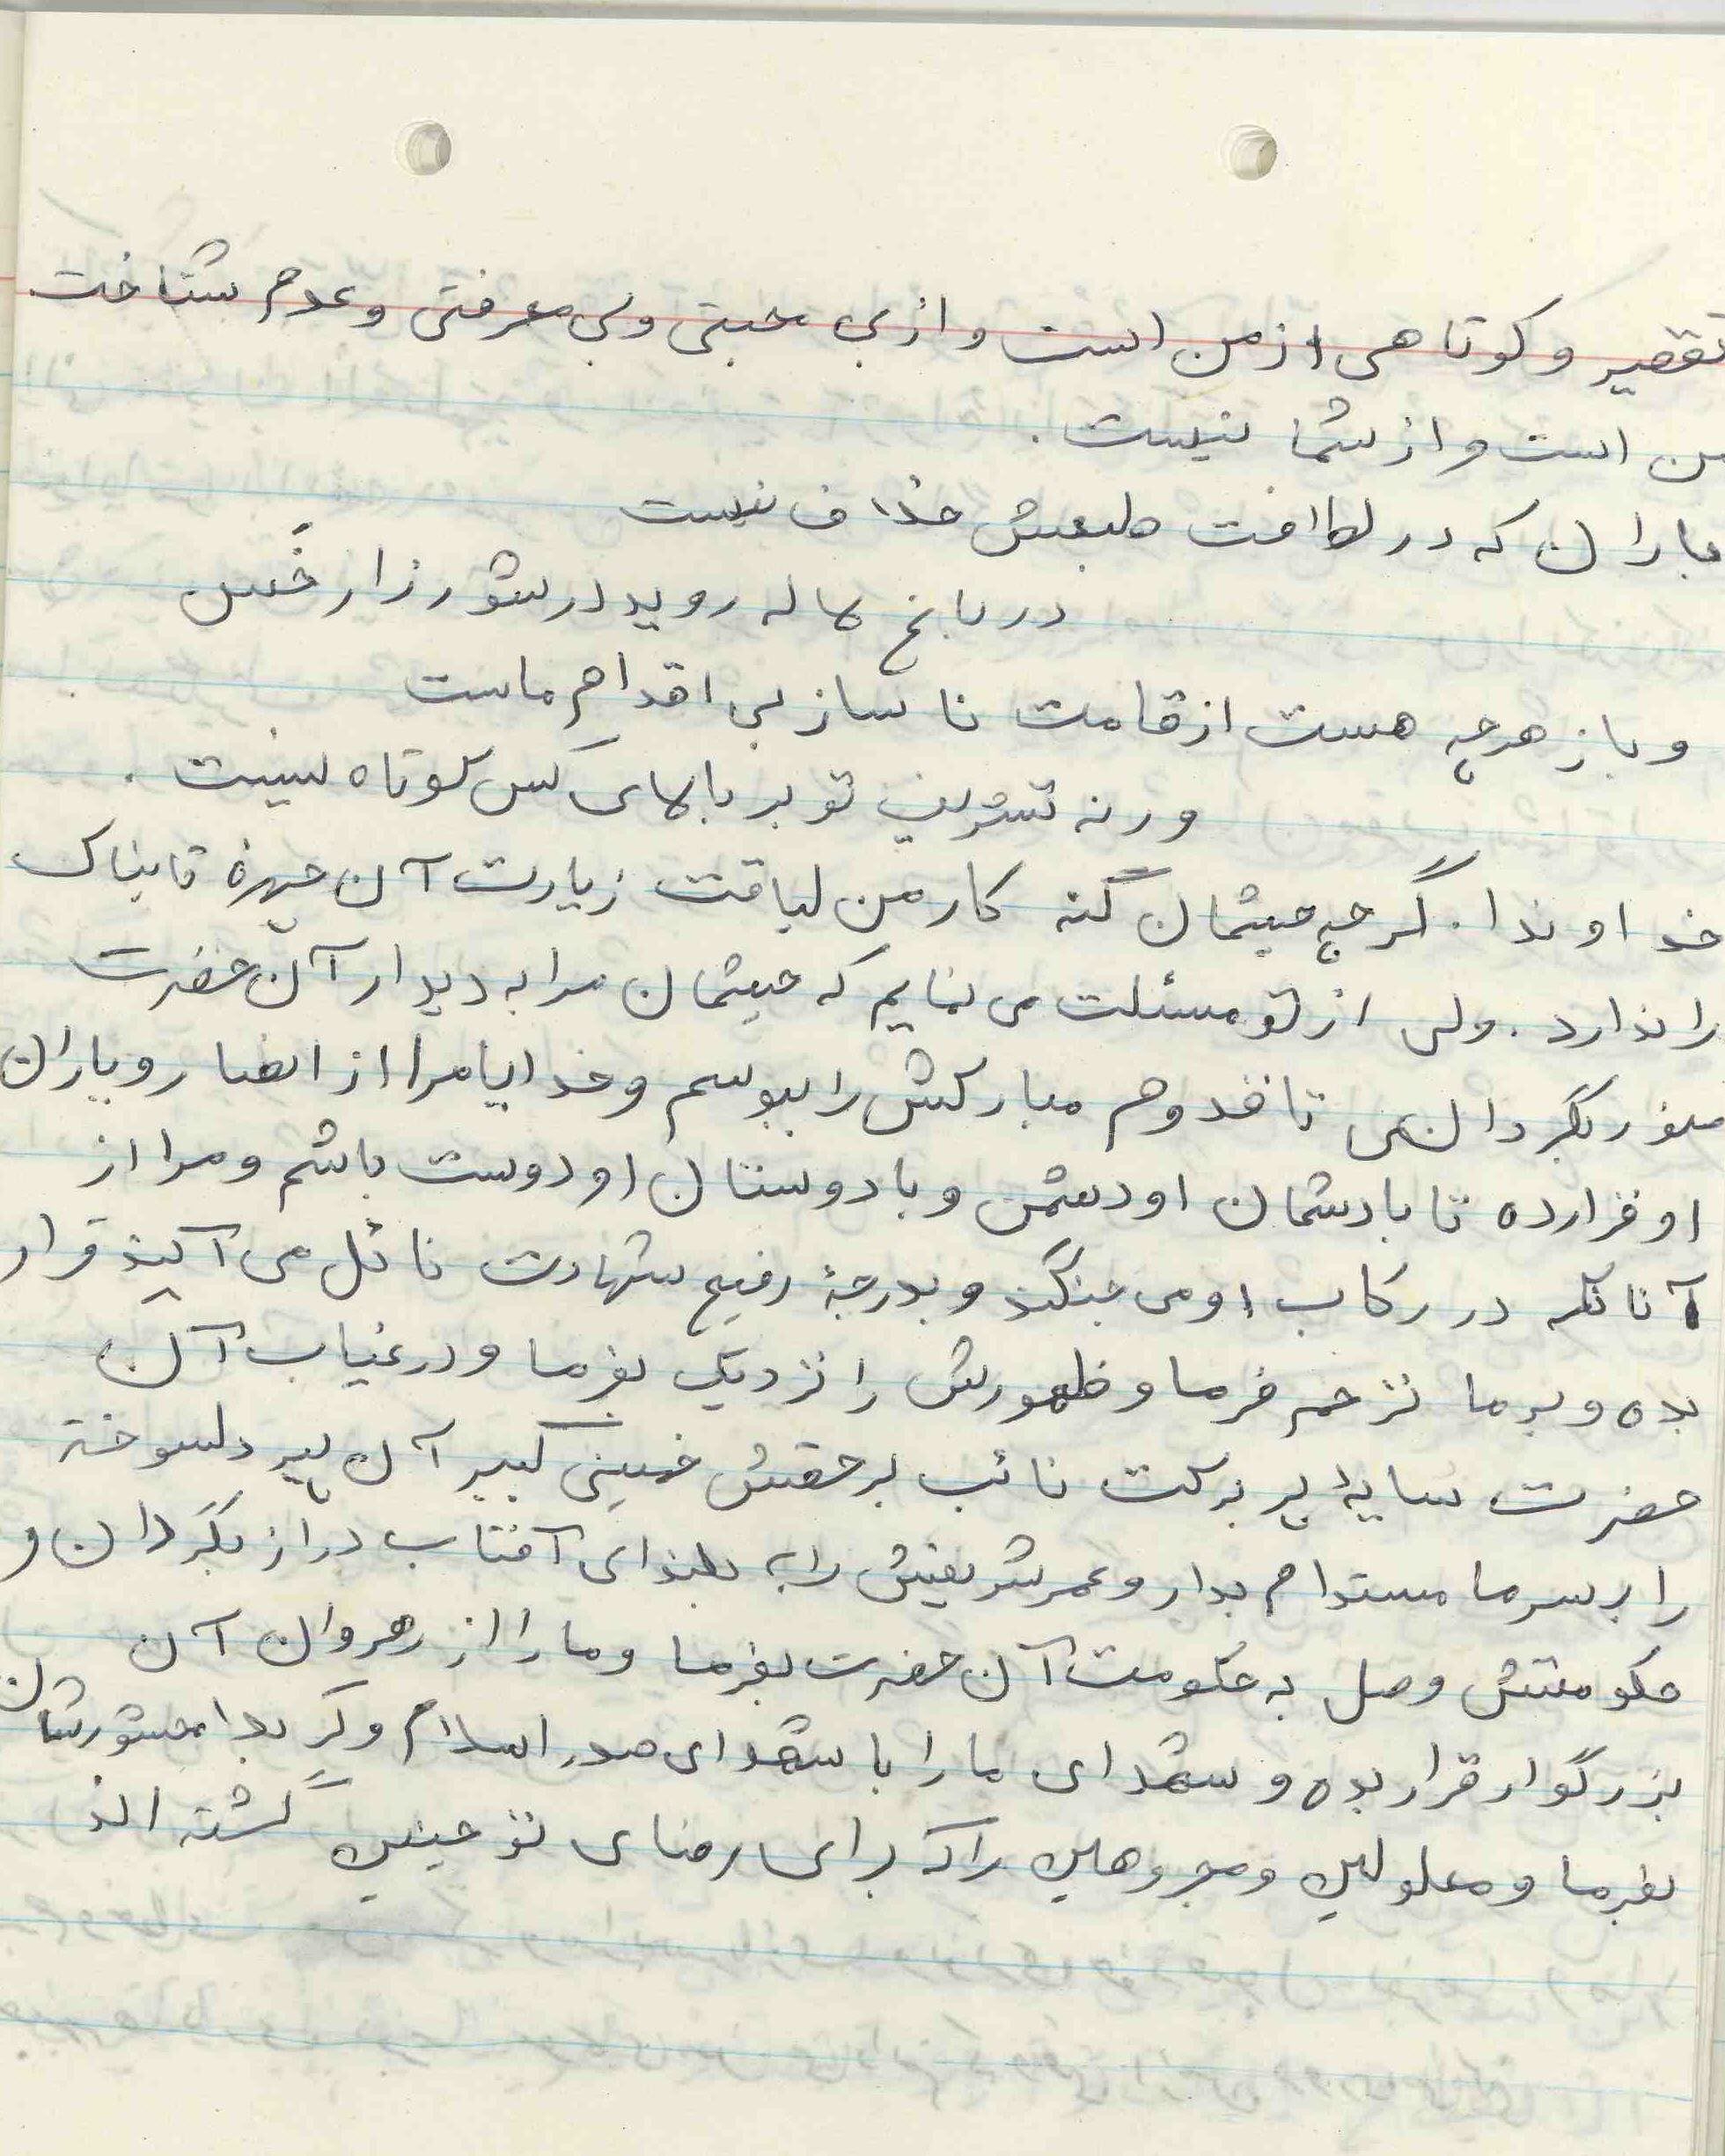 تقصیر و کوتاهی از من است و از بی محبتی و بی معرفتی و عدم شناخت
من است و از شما نیست.
باران که در لطافت طبعش خلاف نیست
در باغ لاله روید در شوره زار خس
و باز هرچه هست از قامت ناساز بی اقدام ماست
ورنه تشریف تو بر بالای کس کوتاه نیست.
خداوندا. گرچه چشمان گنه کار من لیاقت زیارت آن چهرهٔ تابناک
را ندارد. ولی از تو مسئلت می نمایم که چشمان مرا به دیدار آن حضرت
منور بگردان تا قدوم مبارکش را ببوسم و خدایا مرا از انصار و یاران
او قرار ده تا با دشمان او دشمن و با دوستان او دوست باشم و مرا از
آنانکه در رکاب او می جنگند و بدرجهٔ رفیع شهادت نائل می آیند قرار
بده و بر ما ترحم فرما و ظهورش را نزدیک بفرما و در غیاب آن
حضرت سایهٔ پر برکت نائب بر حقش خمینی کبیر آن پیر دلسوخته
را بر سر ما مستدام بدار و عمر شریفش را به بلندای آفتاب دراز بگردان و
حکومتش وصل به حکومت آن حضرت بفرما و ما را از رهروان آن
بزرگوار قرار بده و شهدای ما را با شهدای صدر اسلام و کربلا محشورشان
بفرما و معلولین و مجروهین را که برای رضای تو چنین گشته اند